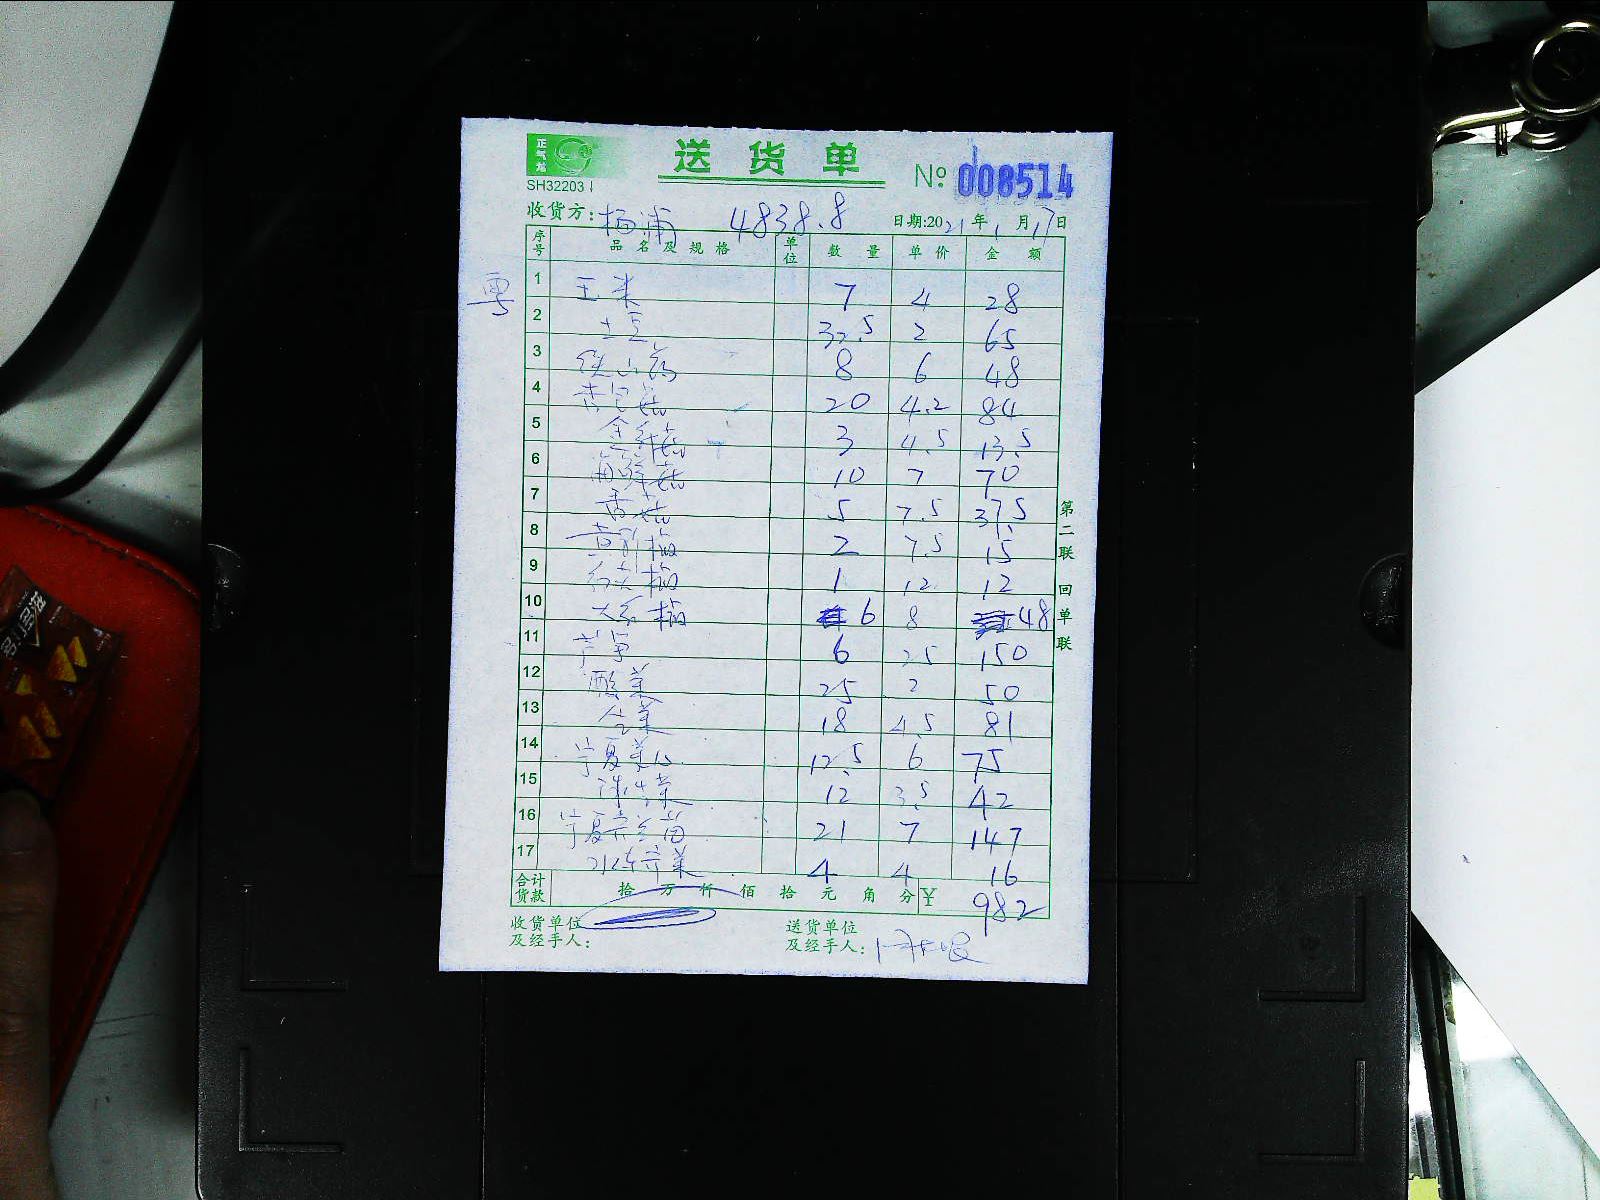 正气龙
SH32203
送货单
№ 008514
收货方: 杨浦 4838.8 日期:2021年1月17日
序号 品名及规格 单位 数量 单价 金额
1 玉米 7 4 28
2 土豆 32.5 2 65
3 铁山药 8 6 48
4 杏鲍菇 20 4.2 84
5 金针菇 3 4.5 13.5
6 海鲜菇 10 7 70
7 香菇 5 7.5 37.5
8 青尖椒 2 7.5 15
9 红尖椒 1 12 12
10 大红椒 6 8 48
11 芦笋 6 25 150
12 酸菜 25 2 50
13 生菜 18 4.5 81
14 宁夏菜心 12.5 6 75
15 12 3.5 42
16 宁夏芥兰苗 21 7 147
17 4 4 16
合计货款 拾 万 仟 佰 拾 元 角 分 ¥ 982
收货单位及经手人:
送货单位及经手人:
第二联 回单联